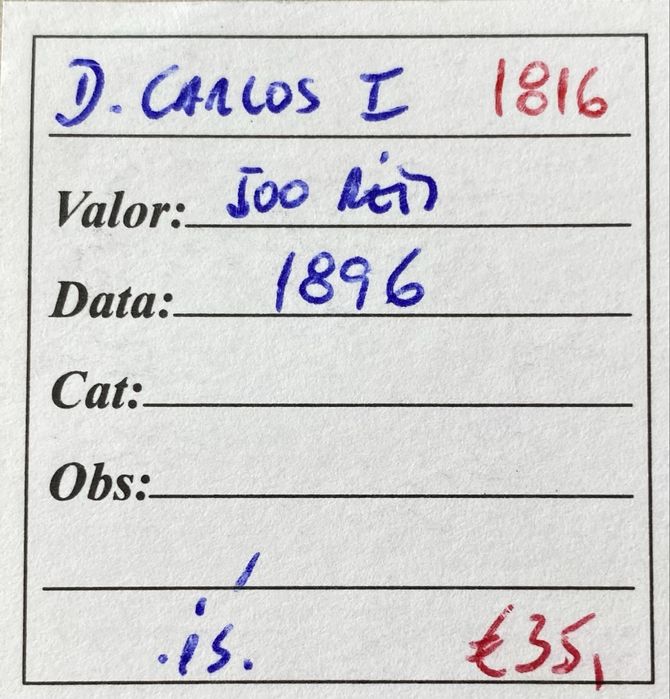 D. CARLOS I 1816
Valor: 500 Réis
Data: 1896
Cat:
Obs:
.is.
€35,